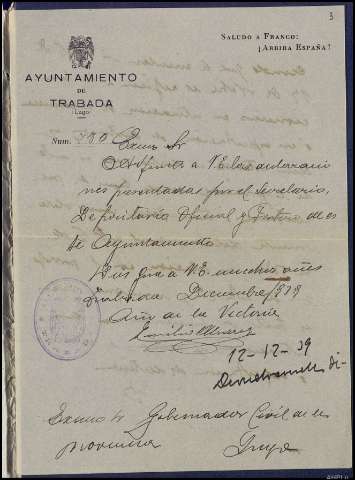 3
SALUDO A FRANCO:
¡ARRIBA ESPAÑA!
AYUNTAMIENTO
DE
TRABADA
(Lugo)
Núm. 780
Excmo Sr
a V.E. las
presentadas por el Secretario,
Depositario Oficial y de es
te Ayuntamiento
Dios gue a V.E. muchos años
Trabada Diciembre 1939
Año de la Victoria
Emilio Alvarez
12-12-39
Excmo Sr Gobernador Civil de la
provincia Lugo